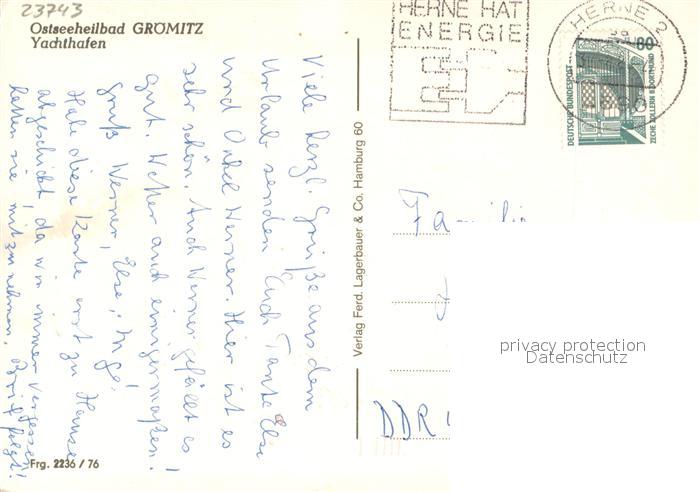 23743
Ostseeheilbad GRÖMITZ
Yachthafen
Viele herzl. Grüße aus dem
Urlaub senden Euch Tante Else
und Onkel Werner. Hier ist es
sehr schön. Auch Werner gefällt es
gut. Wetter auch einigermaßen!
Gruß Werner, Else, Inge.
Habe diese Karte erst zu Hause
abgeschickt, da wir immer vergessen
hatten sie mitzunehmen. Brief folgt!
Frg. 2236 / 76
Verlag Ferd. Lagerbauer & Co. Hamburg 60
HERNE HAT
ENERGIE
HERNE 2
4690
80
DEUTSCHE BUNDESPOST
ZECHE ZOLLERN II DORTMUND
Familie
DDR
privacy protection
Datenschutz